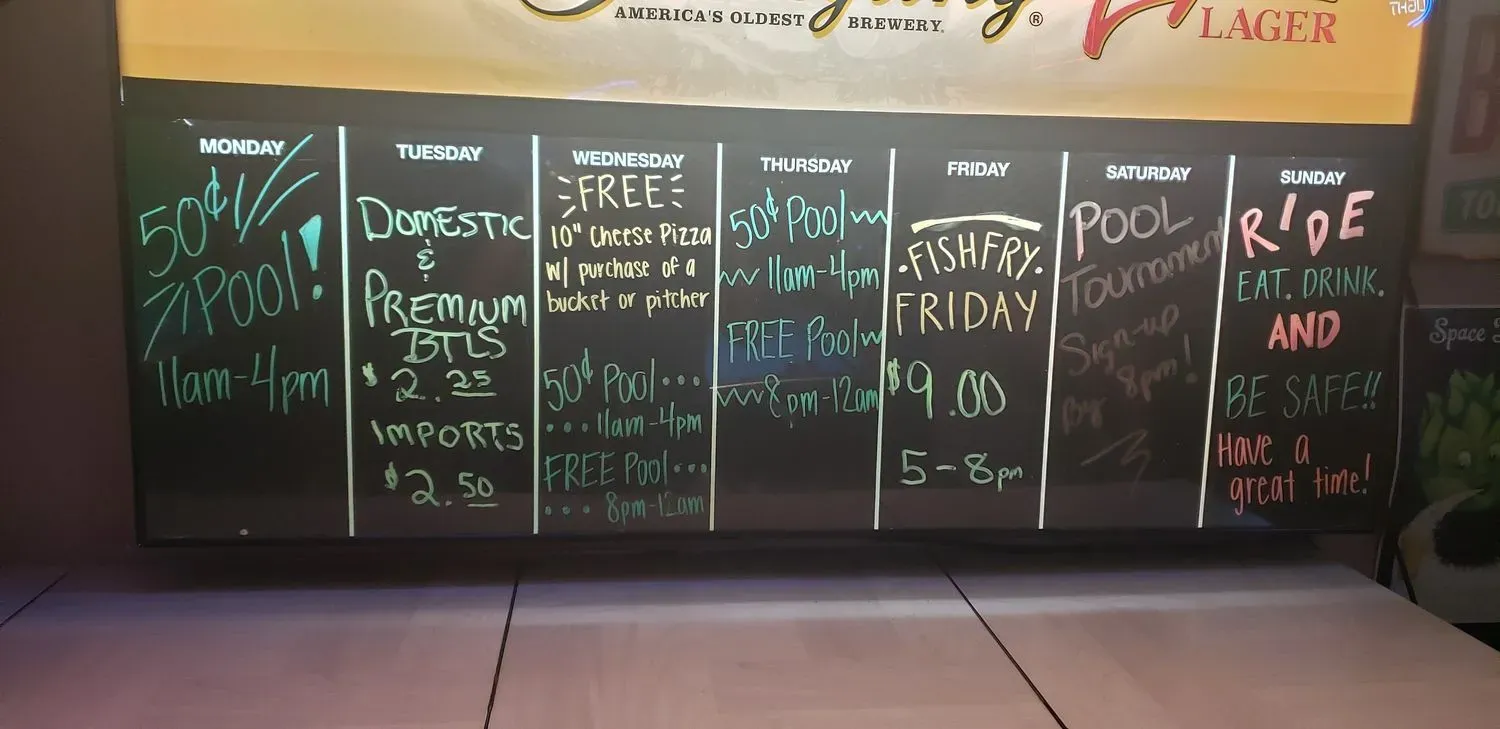 AMERICA'S OLDEST BREWERY.
®
LAGER
MONDAY
50¢
Pool!
11am-4pm
TUESDAY
DOMESTIC
&
PREMIUM
BTLS
$2.25
IMPORTS
$2.50
WEDNESDAY
FREE
10" Cheese Pizza
w/ purchase of a
bucket or pitcher
50¢ Pool...
...11am-4pm
FREE Pool...
...8pm-12am
THURSDAY
50¢ Pool
11am-4pm
FREE Pool
8pm-12am
FRIDAY
·FISH FRY·
FRIDAY
$9.00
5-8pm
SATURDAY
POOL
Tournament
Sign-up
By 8pm!
SUNDAY
RIDE
EAT. DRINK.
AND
BE SAFE!!
Have a
great time!
Space